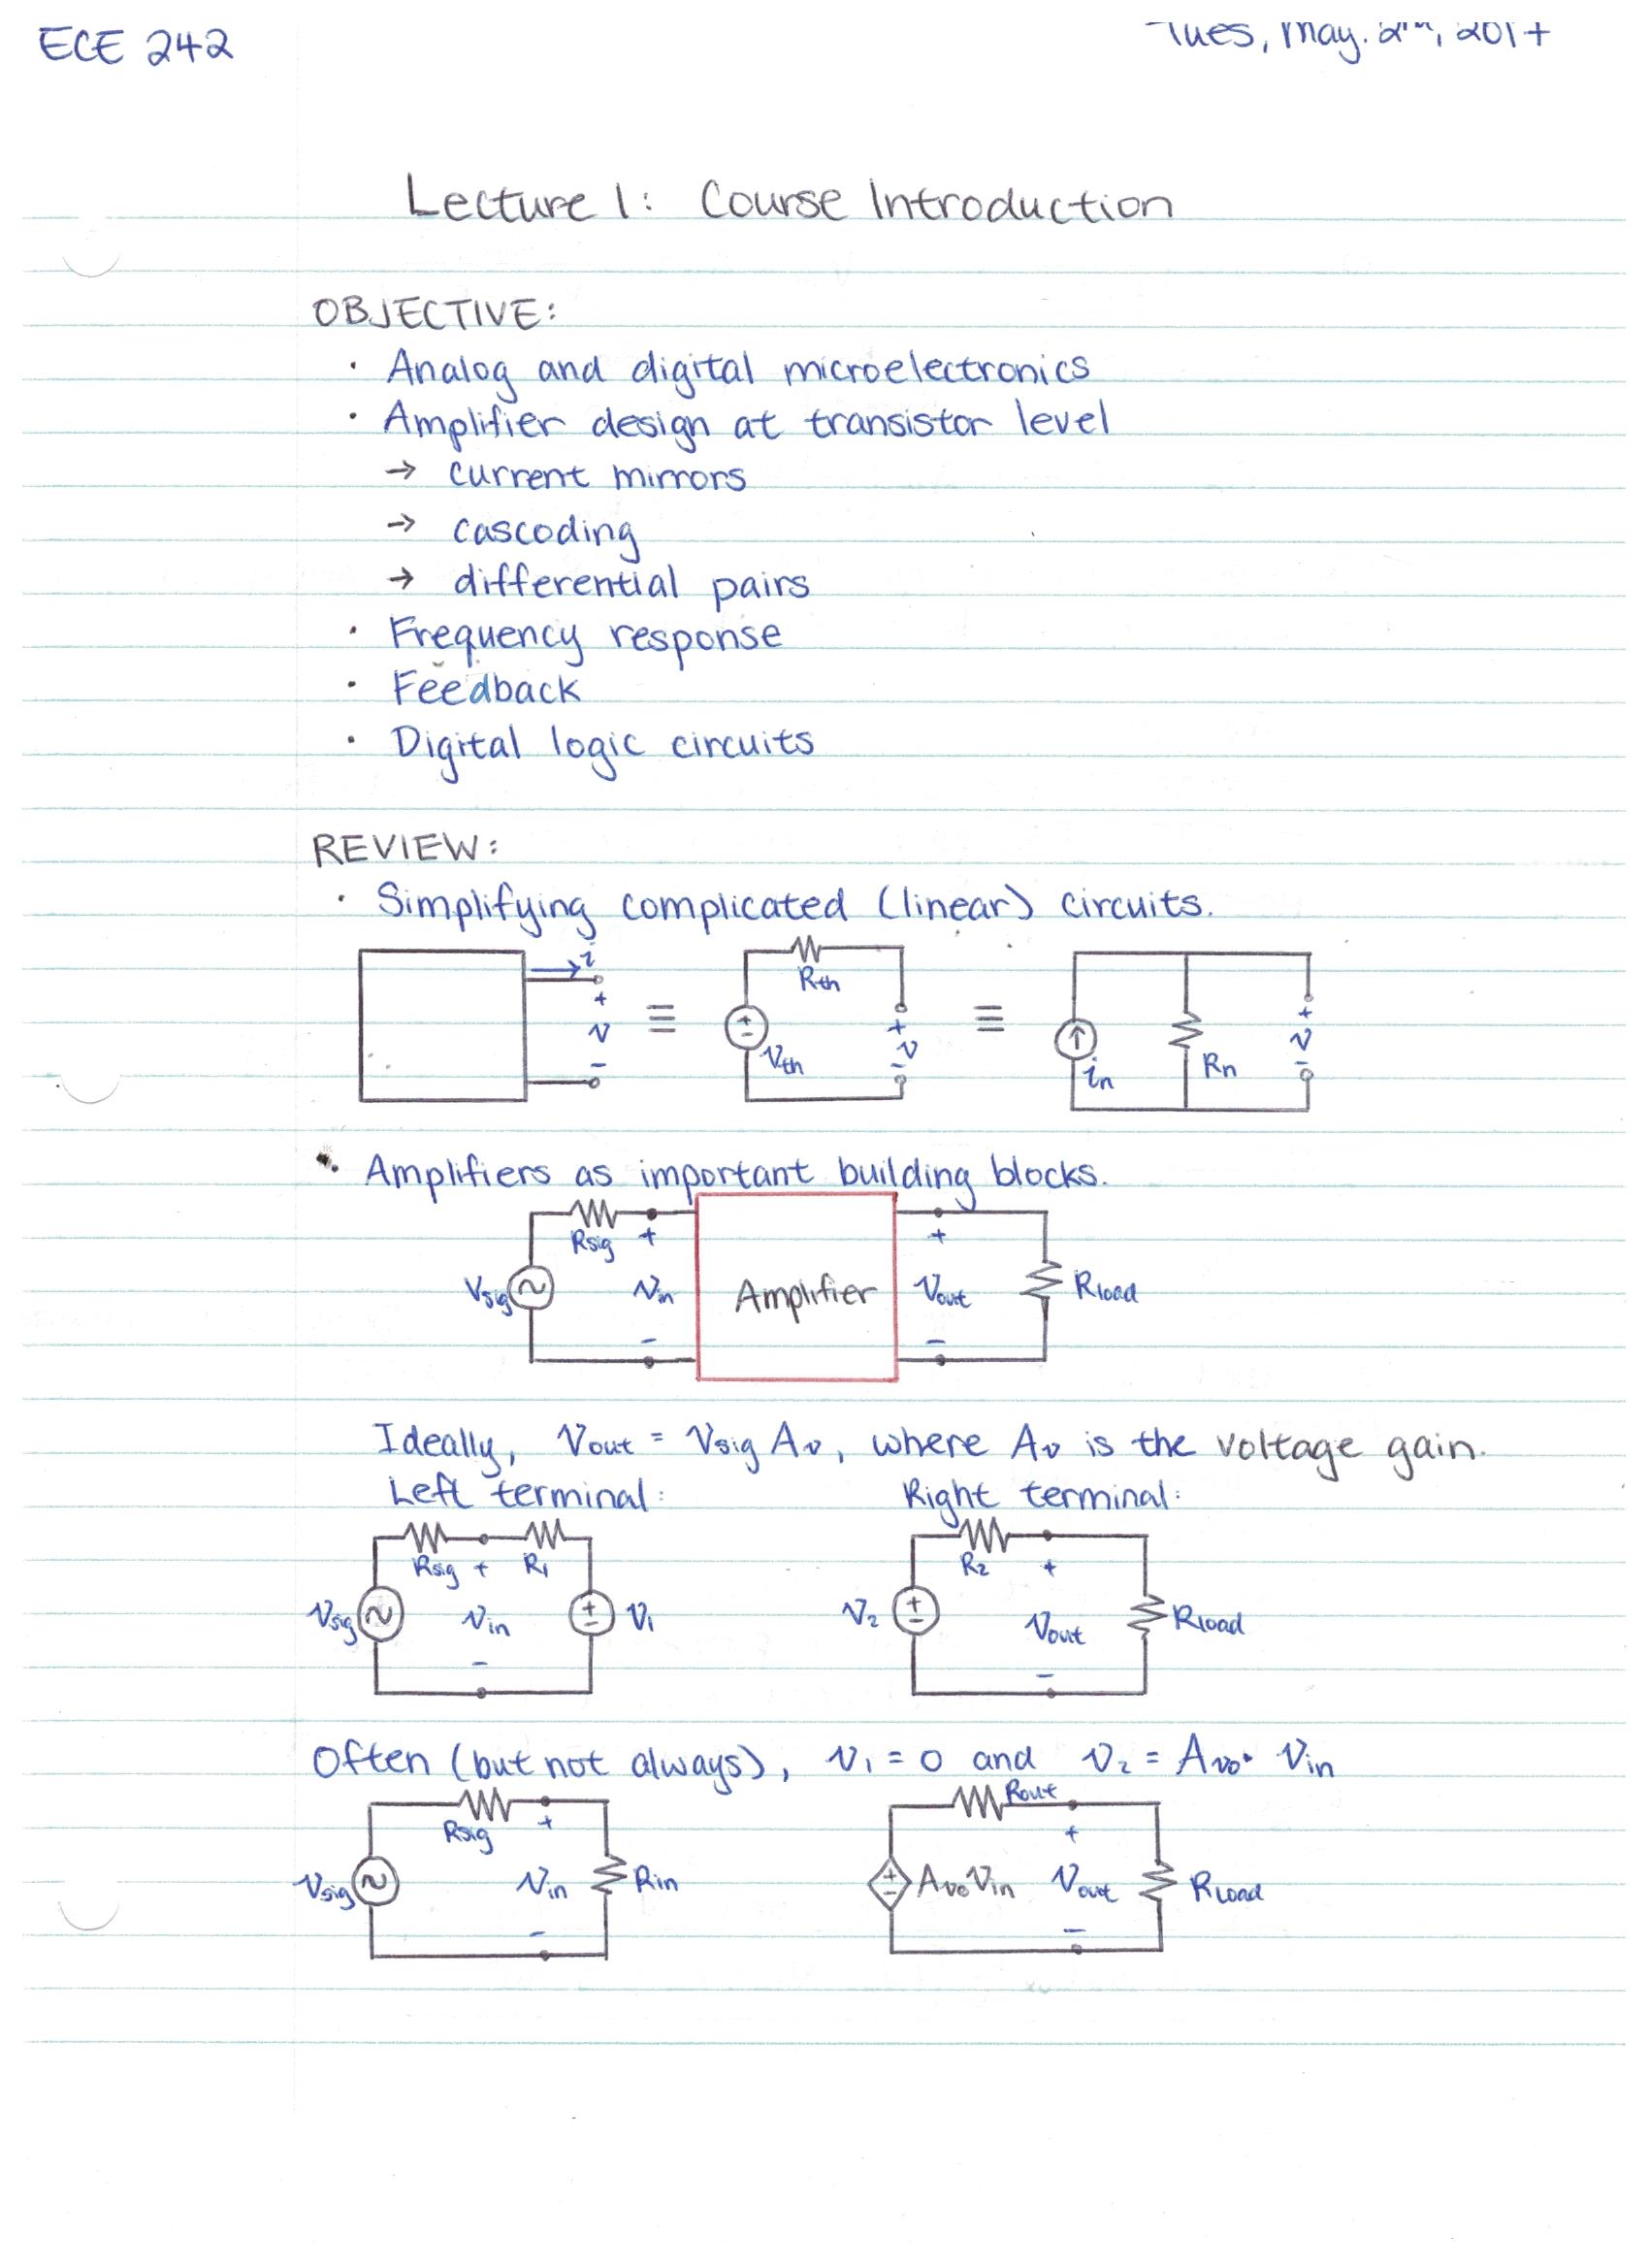 ECE 242
Tues, May. 2nd, 2017
Lecture 1: Course Introduction
OBJECTIVE:
· Analog and digital microelectronics
· Amplifier design at transistor level
→ current mirrors
→ cascoding
→ differential pairs
· Frequency response
· Feedback
· Digital logic circuits
REVIEW:
· Simplifying complicated (linear) circuits.
i + v - ≡ + - Vth Rth + v - ≡ in Rn + v -
· Amplifiers as important building blocks.
Vsig Rsig + Vin - Amplifier + Vout - Rload
Ideally, Vout = Vsig Av, where Av is the voltage gain.
Left terminal: Right terminal:
Vsig Rsig + Vin - R1 + - V1 V2 + - R2 + Vout - Rload
Often (but not always), V1 = 0 and V2 = Avo · Vin
Vsig Rsig + Vin - Rin + - AvoVin Rout + Vout - Rload